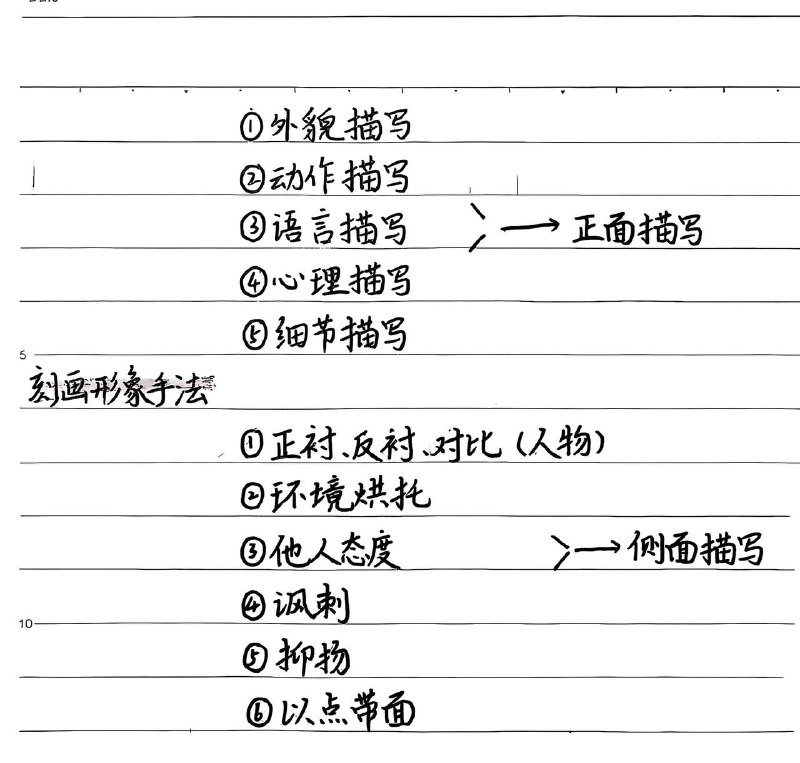 ①外貌描写
②动作描写
③语言描写 → 正面描写
④心理描写
⑤细节描写
5
刻画形象手法
①正衬、反衬、对比（人物）
②环境烘托
③他人态度 → 侧面描写
④讽刺
10
⑤抑扬
⑥以点带面